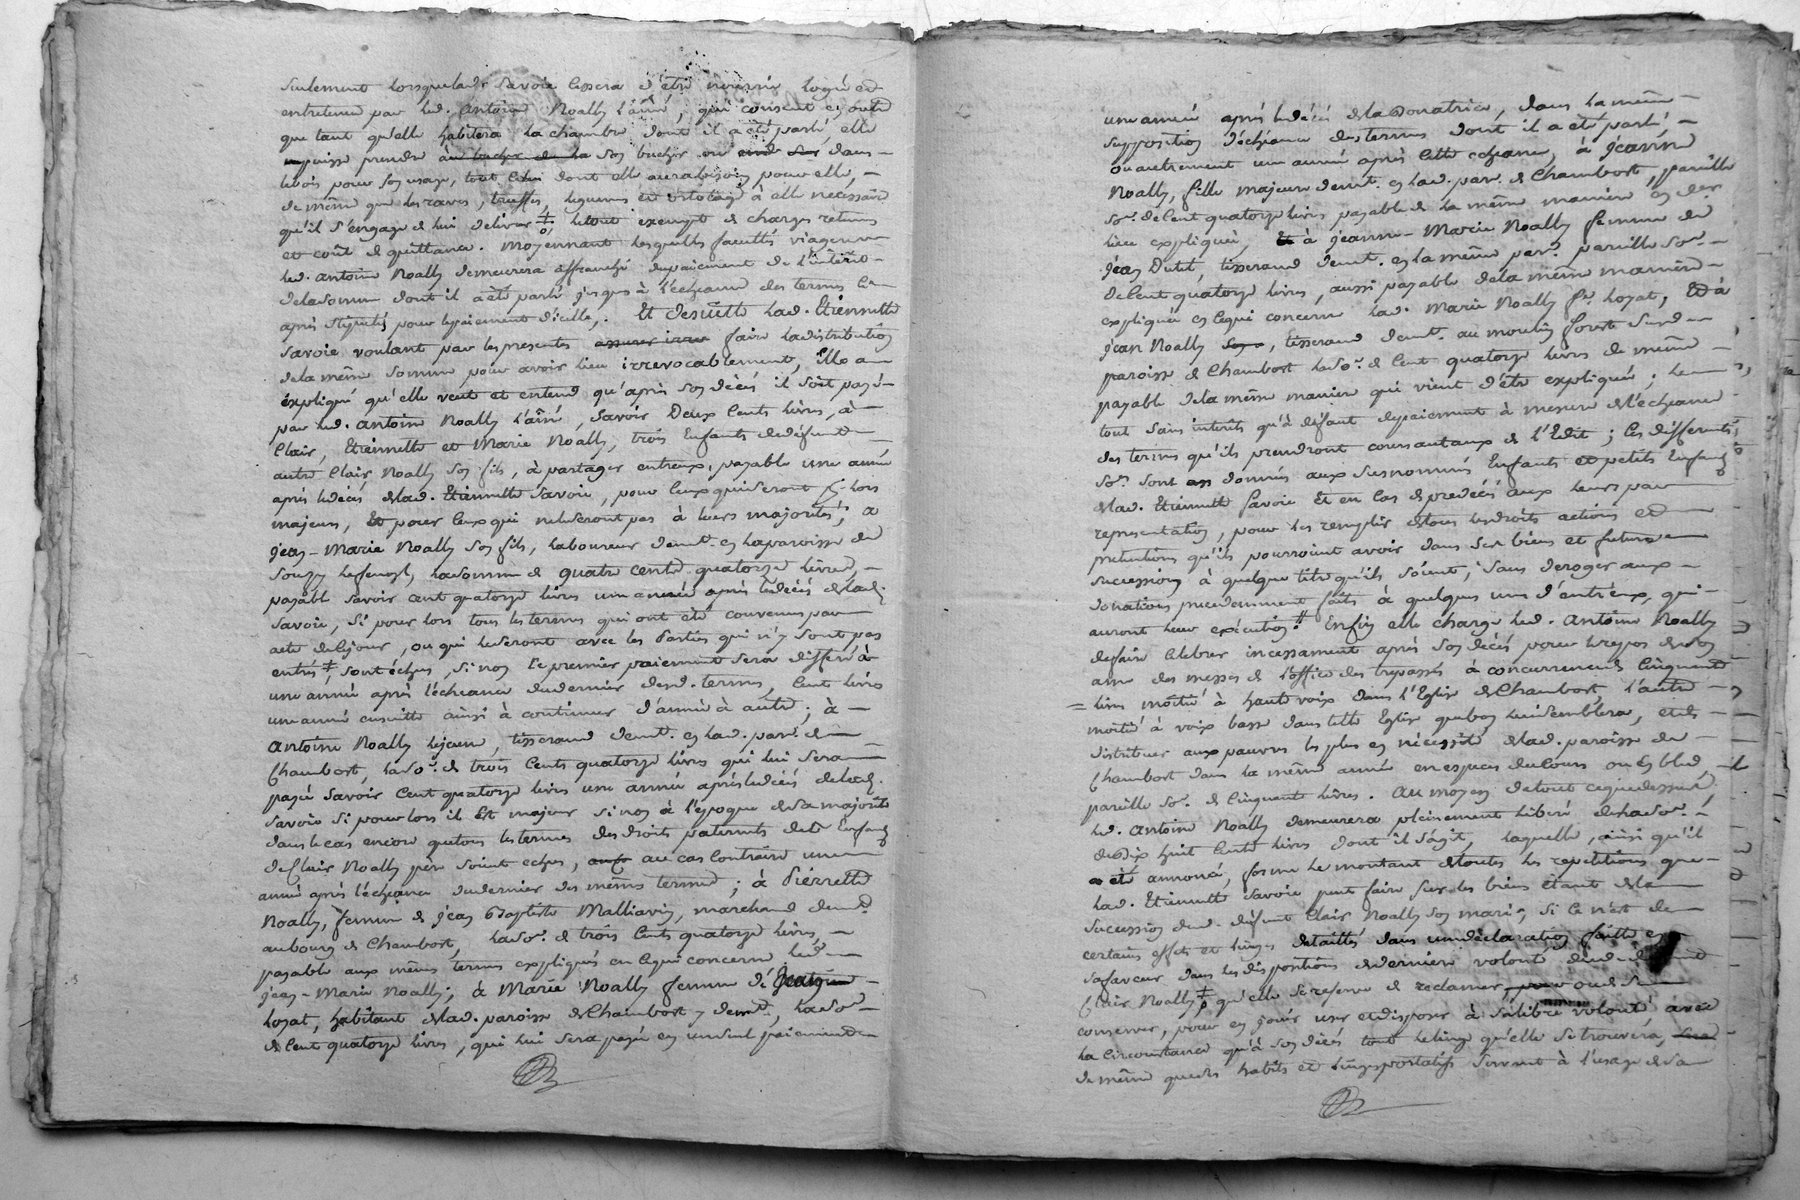 seulement lorsque lad. Savoie cessera d'être nourrie logée et
entretenue par led. Antoine Noally l'ainé, qui consent en outre
que tant qu'elle habitera la chambre dont il a été parlé, elle
puisse prendre au bucher de la son bucher ou dans
le bois pour son usage, tout celui dont elle aura besoin pour elle,
de même que les raves, truffes, legumes et ortolage à elle necessaire
qu'il s'engage de lui delivrer ‡ le tout exempt de charges retenues
et coût de quittance. Moyennant lesquelles facultés viageres
led. Antoine Noally demeurera affranchi du paiement de l'intérêt
de la somme dont il a été parlé jusques à l'echeance des termes ci
après stipulés pour le paiement d'icelle. Et desuitte lad. Etiennette
Savoie voulant par les presentes assurer irrev faire la distribution
de la même somme pour avoir lieu irrevocablement, Elle a
expliqué qu'elle veut et entend qu'après son décés il soit payé
par led. Antoine Noally l'ainé, Savoir Deux Cents livres, à
Clair, Etiennette et Marie Noally, trois Enfants de defunt
autre Clair Noally son fils, à partager entreux, payable une année
après le décés de lad. Etiennette Savoie, pour ceux qui seront lors
majeurs, Et pour ceux qui ne le seront pas à leurs majorités; a
Jean-Marie Noally son fils, laboureur demt. en la paroisse de
Souzy la somme de quatre cents quatorze livres,
payable savoir cent quatorze livres une année après le décés de lad.
Savoie, Si pour lors tous les termes qui ont été convenus par
acte de ce jour, ou qui le seront avec les Parties qui n'y sont pas
entrés ‡, sont échus, si non le premier paiement sera differé à
une année après l'echeance du dernier desd. termes, Cent livres
une année ensuitte ainsi à continuer d'année à autre; à
Antoine Noally le jeune, tisserand demt. en lad. par. de
Chambost, la So. de trois Cents quatorze livres qui lui sera
payée savoir Cent quatorze livres une année après le décés de lad.
Savoie si pour lors il Est majeur si non à l'epoque de sa majorité
dans le cas encore que tous les termes des droits paternels des Enfans
de Clair Noally père soient echus, au cas contraire une
année après l'échéance du dernier des mêmes termes; à Pierrette
Noally, femme de Jean Baptiste Malliavin, marchand demt.
au bourg de Chambost, la So. de trois Cents quatorze livres,
payable aux mêmes termes expliqués en ce qui concerne led.
Jean-Marie Noally; à Marie Noally femme de Jean
Loyat, habitant de lad. paroisse de Chambost y demt., la So.
de Cent quatorze livres, qui lui sera payée en un seul paiement
une année après le décés de la Donatrice, dans la même
supposition d'échéance des termes dont il a été parlé
ou autrement une année après cette echeance, à Jeanne
Noally, fille majeure demt. en lad. par. de Chambost, pareille
So. de Cent quatorze livres payable de la même manière
lieu expliquée, Et à Jeanne-Marie Noally femme de
Jean Dutel, tisserand demt. en la même par. pareille So.
de Cent quatorze livres, aussi payable de la même manière
expliquée en ce qui concerne lad. Marie Noally fe. Loyat, Et à
Jean Noally, tisserand demt. au moulin
paroisse de Chambost la So. de Cent quatorze livres de même
payable de la même manière qui vient d'être expliquée; le
tout sans intérêts qu'à défaut de paiement à mesure de l'echeance
des termes qu'ils prendront cours au taux de l'Edit; Ces differentes
So. sont donnés aux susnommés Enfants et petits Enfans
de lad. Etiennette Savoie Et en cas de predécés aux leurs par
representation, pour les remplir de tous les droits actions et
pretentions qu'ils pourroient avoir dans ses biens et future
succession à quelque titre qu'ils soient, sans deroger aux
donations precedemment faites à quelques uns d'entreux, qui
auront leur exécution. Enfin elle charge led. Antoine Noally
de faire Célébrer incessament après son décés pour le repos de son
ame des messes de l'office des trepassés à concurrence de Cinquante
livres moitié à haute voix dans l'Eglise de Chambost, l'autre
moitié à voix basse dans telle Eglise que bon lui semblera, et de
distribuer aux pauvres les plus en nécessité de lad. paroisse de
Chambost dans la même année en espèces de cours ou en bled
pareille So. de Cinquante livres. Au moyen de tout ce que dessus,
led. Antoine Noally demeurera pleinement liberé de la So.
de Dix huit Cents livres dont il s'agit, laquelle, ainsi qu'il
a été annoncé, forme le montant de toutes les repetitions que
lad. Etiennette Savoie peut faire sur les biens étant de la
succession dud. défunt Clair Noally son mari, Si ce n'est de
certains effets et linges detaillés dans une declaration faitte en
sa faveur dans les dispositions de derniere volonté dud. defunt
Clair Noally ‡ qu'elle se reserve de reclamer, ou de
conserver, pour en jouir user et disposer à sa libre volonté, avec
la Circonstance qu'à son décés tout le linge qu'elle se trouvera,
de même que des habits et linges portatifs servant à l'usage de sa